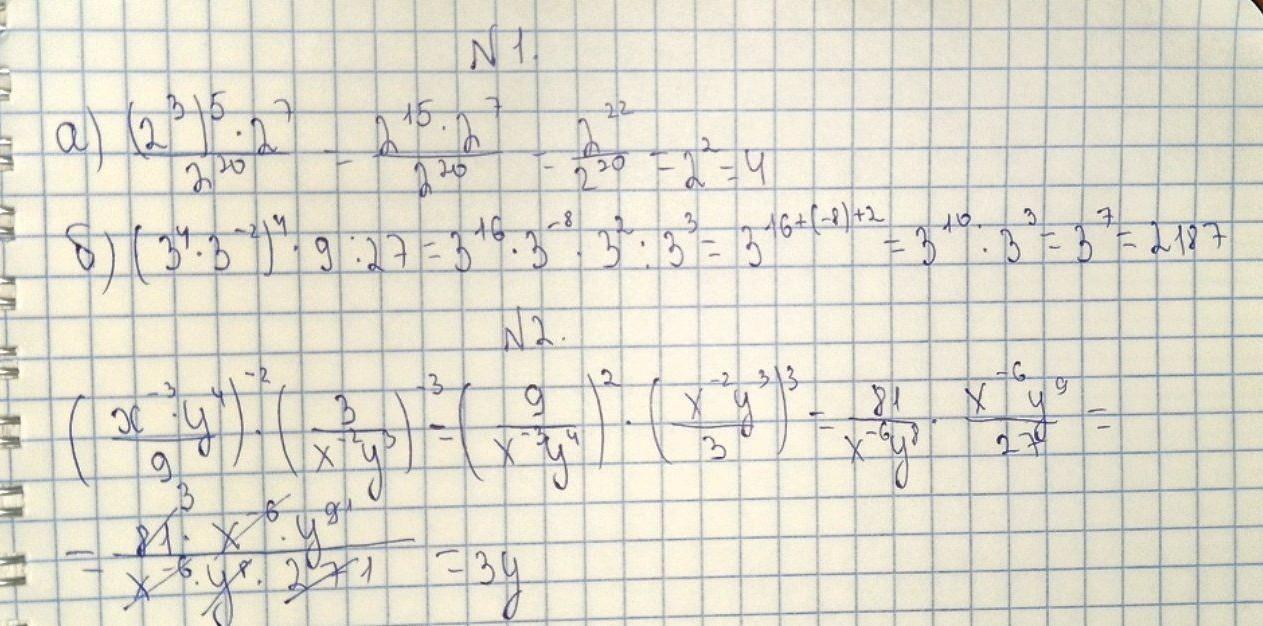 N1.
а) \frac{(2^3)^5 \cdot 2^7}{2^{20}} = \frac{2^{15} \cdot 2^7}{2^{20}} = \frac{2^{22}}{2^{20}} = 2^2 = 4
б) (3^4 \cdot 3^{-2})^4 \cdot 9 : 27 = 3^{16} \cdot 3^{-8} \cdot 3^2 : 3^3 = 3^{16+(-8)+2} = 3^{10} : 3^3 = 3^7 = 2187
N2.
\left(\frac{x^{-3} \cdot y^4}{9}\right)^{-2} \cdot \left(\frac{3}{x^{-2}y^3}\right)^{-3} = \left(\frac{9}{x^{-3}y^4}\right)^2 \cdot \left(\frac{x^{-2}y^3}{3}\right)^3 = \frac{81}{x^{-6}y^8} \cdot \frac{x^{-6}y^9}{27} =
= \frac{81^3 \cdot x^{-6} \cdot y^{9 1}}{x^{-6} \cdot y^8 \cdot 27 1} = 3y